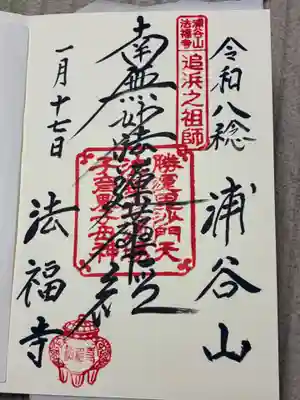 令和八稔
浦谷山
浦谷山
法福寺
追浜之祖師
南無妙法蓮華経
勝源毘沙門天
子育鬼子母神
一月十七日
法福寺